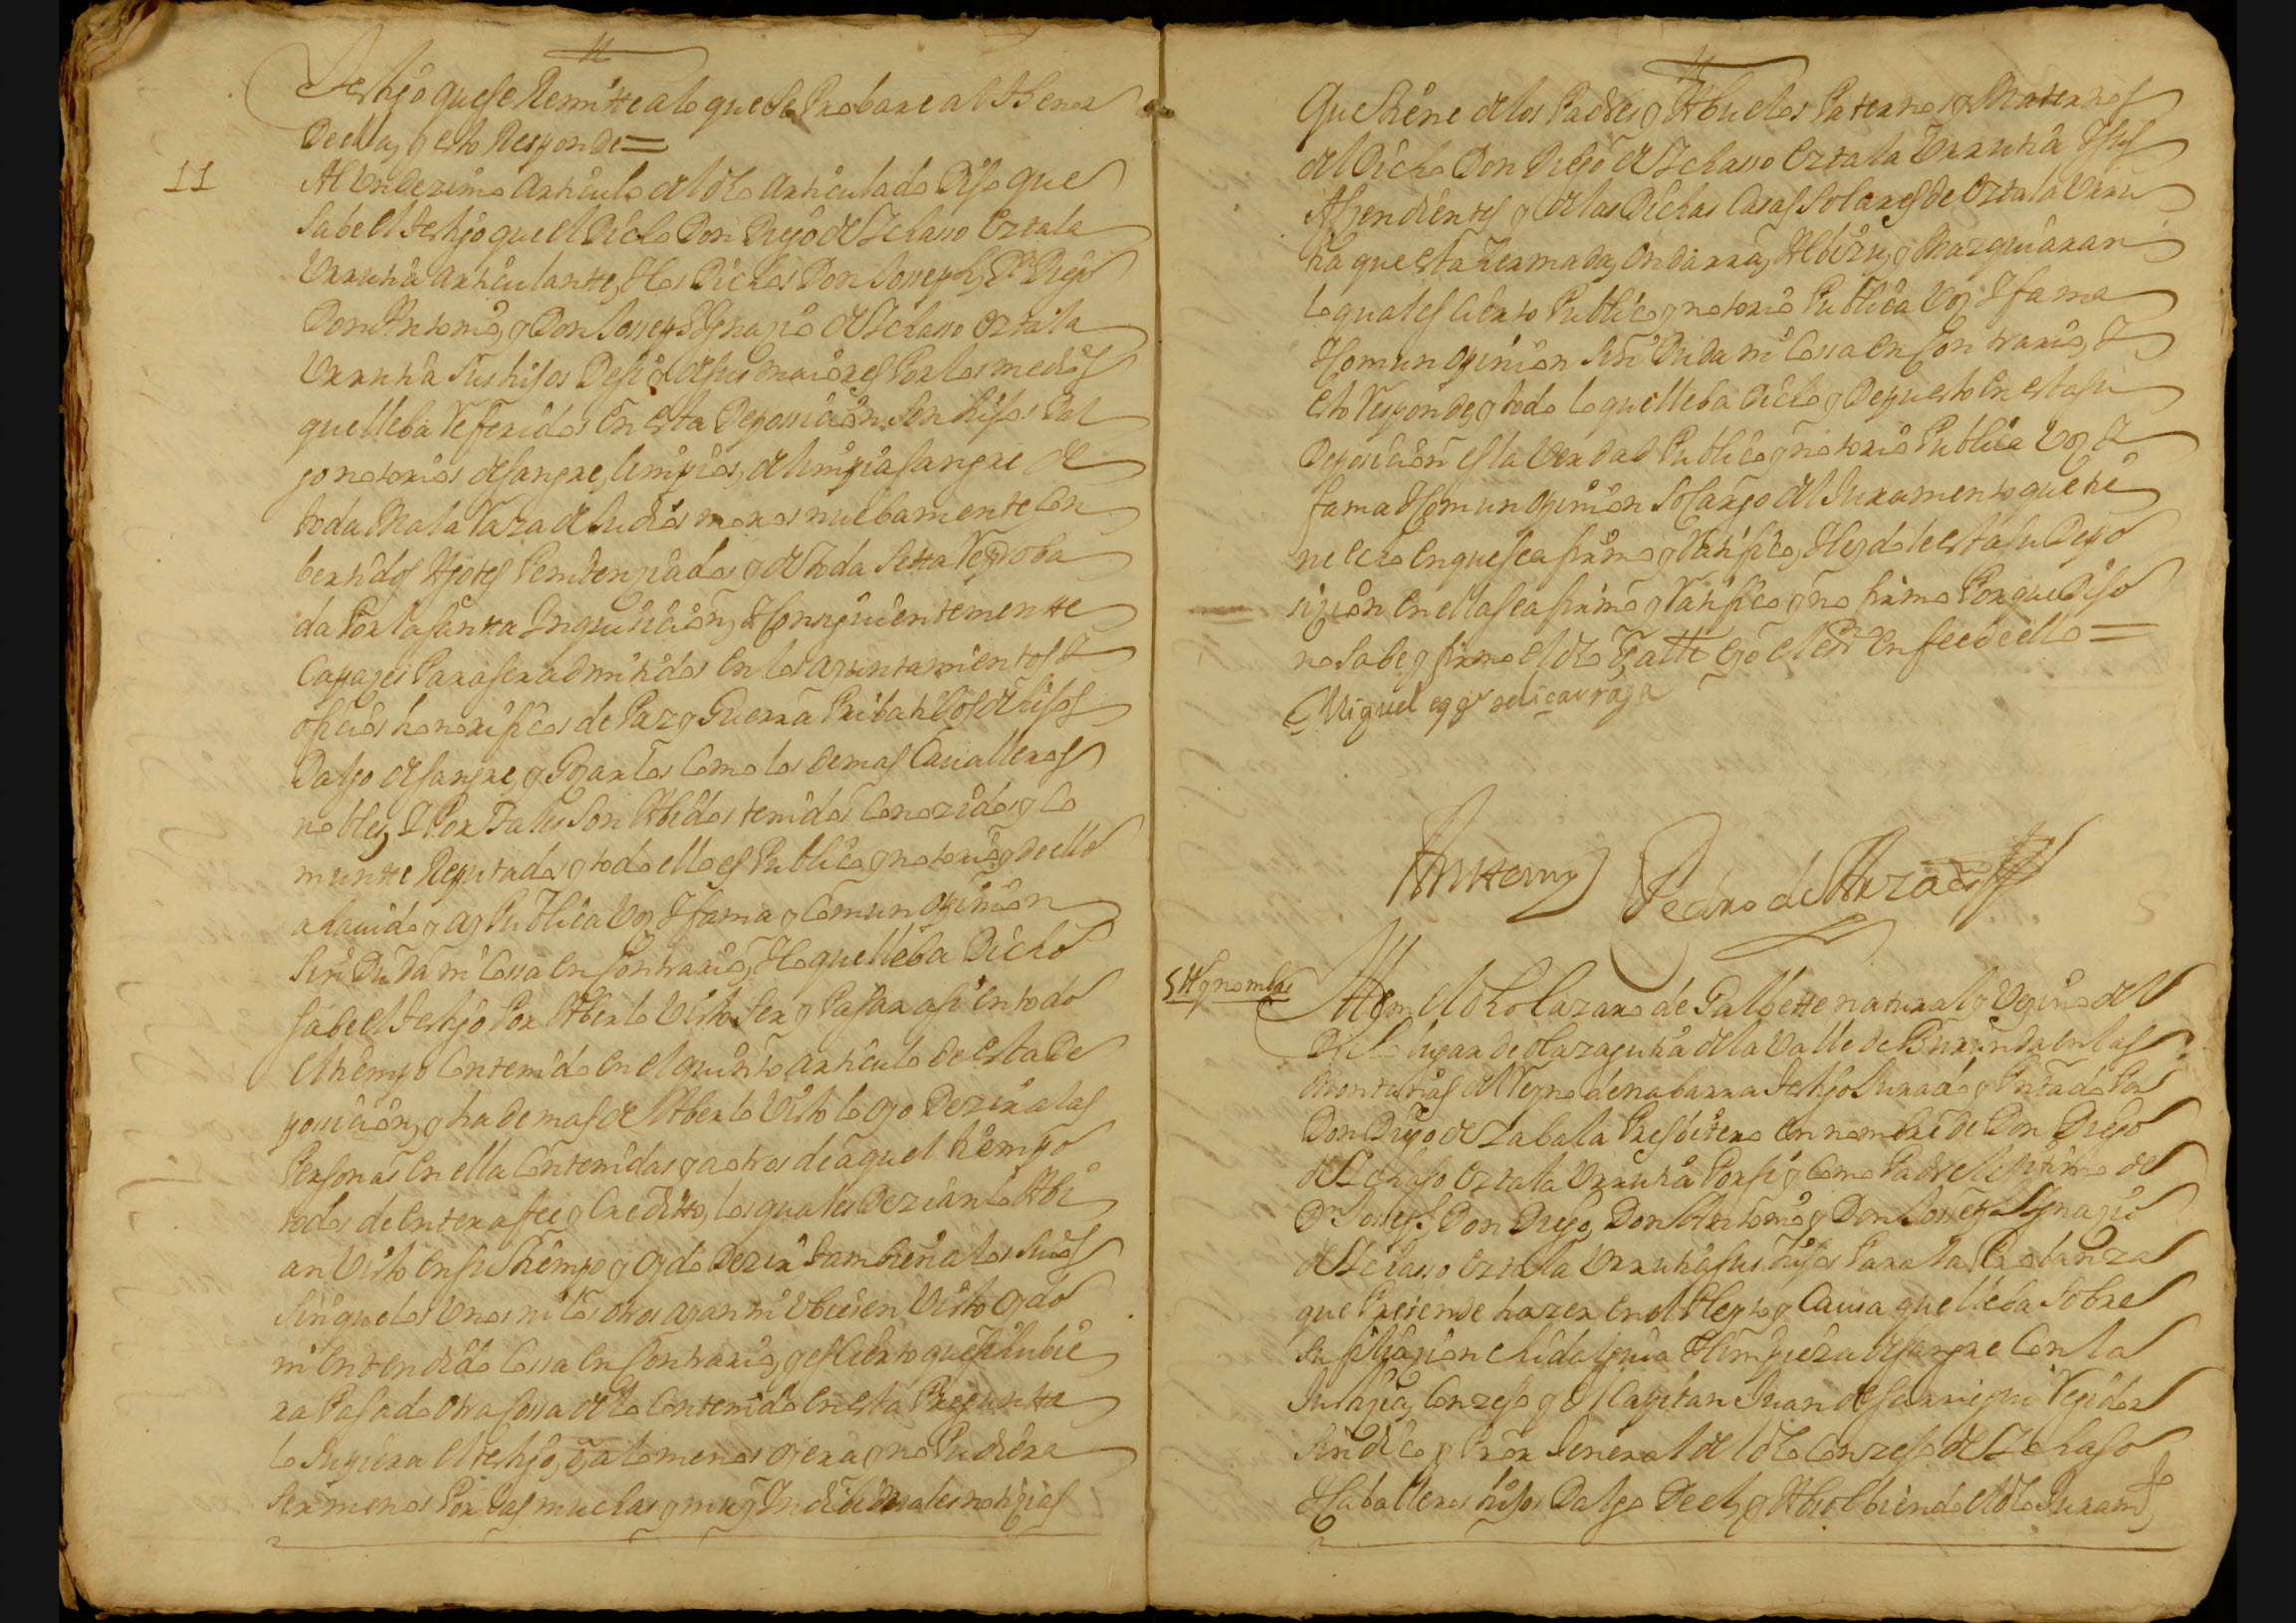 testigo que se Remitte a lo que se Probare al thenor
de ella, y esto Responde =
11
Al Undezimo articulo del dho articulado Dijo que
save el testigo que el Dicho Don Diego de Ychasso Oztala
Urrutia articulante, Y los Dichos Don Josseph, Dn Diego
Don Antonio, y Don Josseph Ygnazio de Ychasso Oztala
Urrutia sus hijos De si y de sus maiores Por los medios
que lleba Referidos en esta Deposicion son hijos Dal
go notorios de sangre, limpios, de limpia sangre de
toda Mala Raza de Judios moros nuebamente Con
bertidos Agotes Penitenziados y de toda Setta Reproba
da Por la santta Inquisicion, Y Consiguientementte
Capazes Para ser admitidos en los ayuntamientos Y
oficios honorificos de Paz y Guerra Pribatibos de hijos
Dalgo de sangre, y Gozarlos Como los demas Cavalleros
nobles, Y Por Tales son Abidos tenidos Conozidos y Co
muntte Reputados y todo ello es Publico y notorio y de ello
a havido y ay Publica Voz Y fama y Comun opinion
sin Duda ni Cossa en Contrario, Y lo que lleba Dicho
sabe el testigo Por Aberlo Visto ser y Pasar asi en todo
el tiempo Contenido en el quinto articulo de esta De
posicion, y ha demas de Aberlo Visto lo oyo Dezir a las
Personas en ella Contenidas y a otros de aquel tiempo
todos de entera fee y Creditto, los quales Dezian lo Abi
an Visto en su tiempo y oydo Dezir tambien a los suios
sin que los Unos ni los otros ayan ni Ubiesen Visto oydo
ni entendido Cossa en Contrario, y es Cierto que si hubie
ra Pasado otra Cossa de lo Contenido en esta Preguntta
lo supiera el testigo, o a lo menos oyera y no Pudiera
ser menos Por las muchas y muy Individuales notizias
que tiene de los Padres y Abuelos Paternos y Maternos
del Dicho Don Diego de Ychasso Oztala Urrutia Y sus
Aszendientes y de las Dichas Casas Solares de Oztala Urru
tia questa Yermada, Ondarra, Albizu, y Mazquiaran
lo qual es Cierto Publico y notorio Publica Voz Y fama
Y Comun opinion sin Duda ni Cossa en Contrario, Y
esto Responde, y todo lo que lleba dicho y Depuesto en esta su
Deposicion es la Verdad Publico y notorio Publica Voz Y
fama Y Comun opinion so Cargo del Juramento que tie
ne echo en que se afirmo y Ratifico, Y leydole esta su Depo
sizion en ella se afirmo y Ratifico y no firmo Porque Dijo
no sabe y firmo el dho ... e yo el ess.no en fee de ello =
Miguel ...
Antte my Pedro de ...
5 ...
Item el dho Lazaro de Galbette natural y Vezino del
Dho lugar de olazagutia de la Valle de Burunda en las
Montañas del Reyno de nabarra testigo Jurado y Pntado Por
Don Diego de Zabala Presbitero en nombre de Don Diego
de Ychaso Oztala Urrutia Por si y Como Padre lexitimo de
Dn Josseph Don Diego, Don Antonio, y Don Josseph Ygnazio
de Ychasso Oztala Urrutia sus hijos Para la Probanza
que Pretende hazer en el Pleyto y Causa que lleba sobre
su filiazion e hidalguia Y limpieza de sangre Con la
Justizia, Conzejo y el Capitan Juan de ... Regidor
Sindico y Pror General del dho Conzejo de Ychaso
Y Caballeros hijos Dalgo De el, y Absolbiendo el dho Juramto